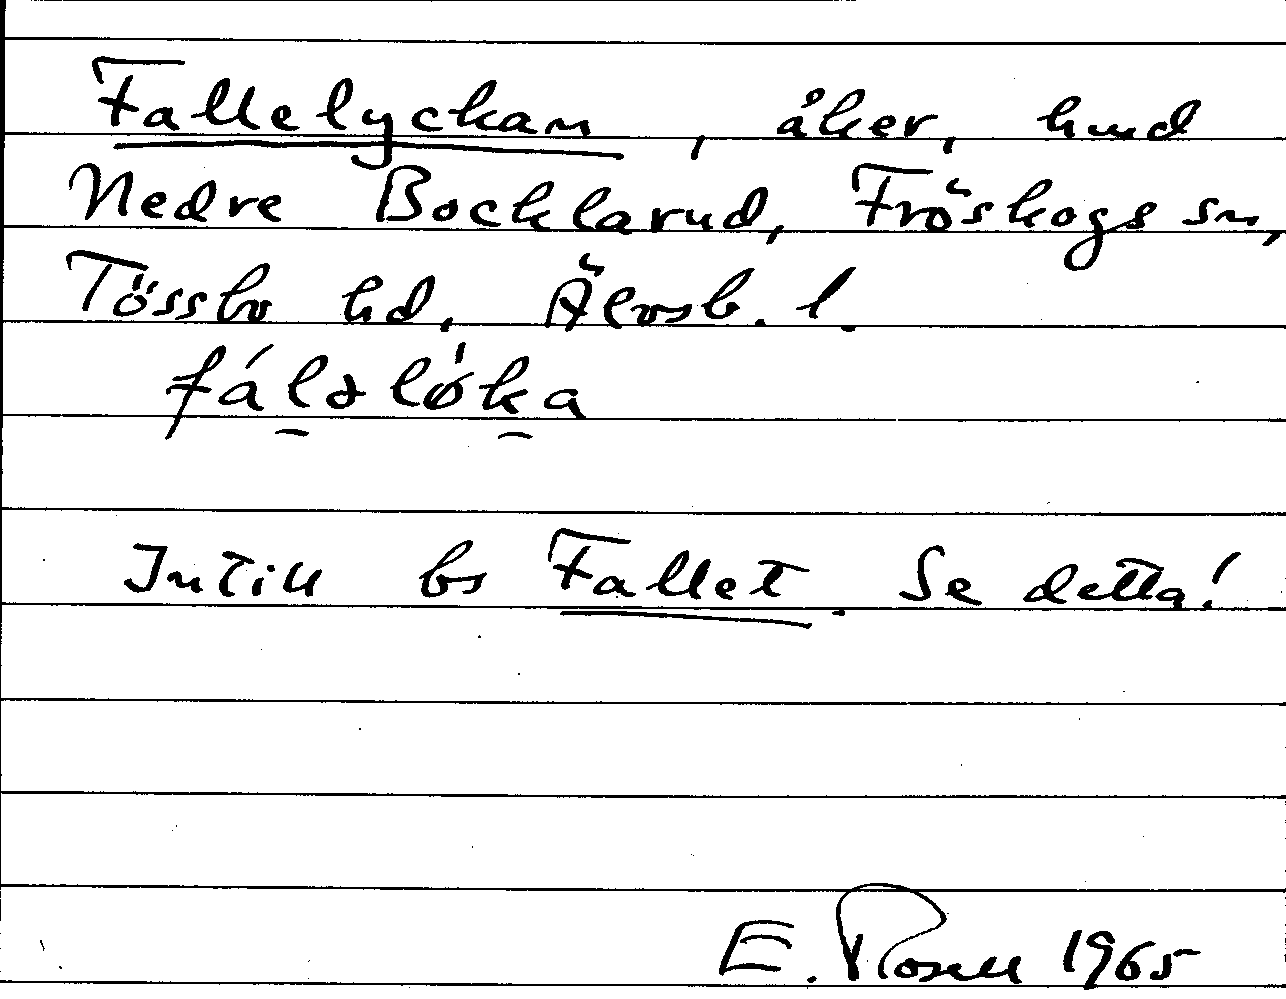 Fallelyckan, åker, hmd
Nedre Bocklarud, Fröskogs sn,
Tössbo hd, Älvsb. l.
fálǝlø̀ka
Intill bs Fallet. Se detta!
E. Rosell 1965